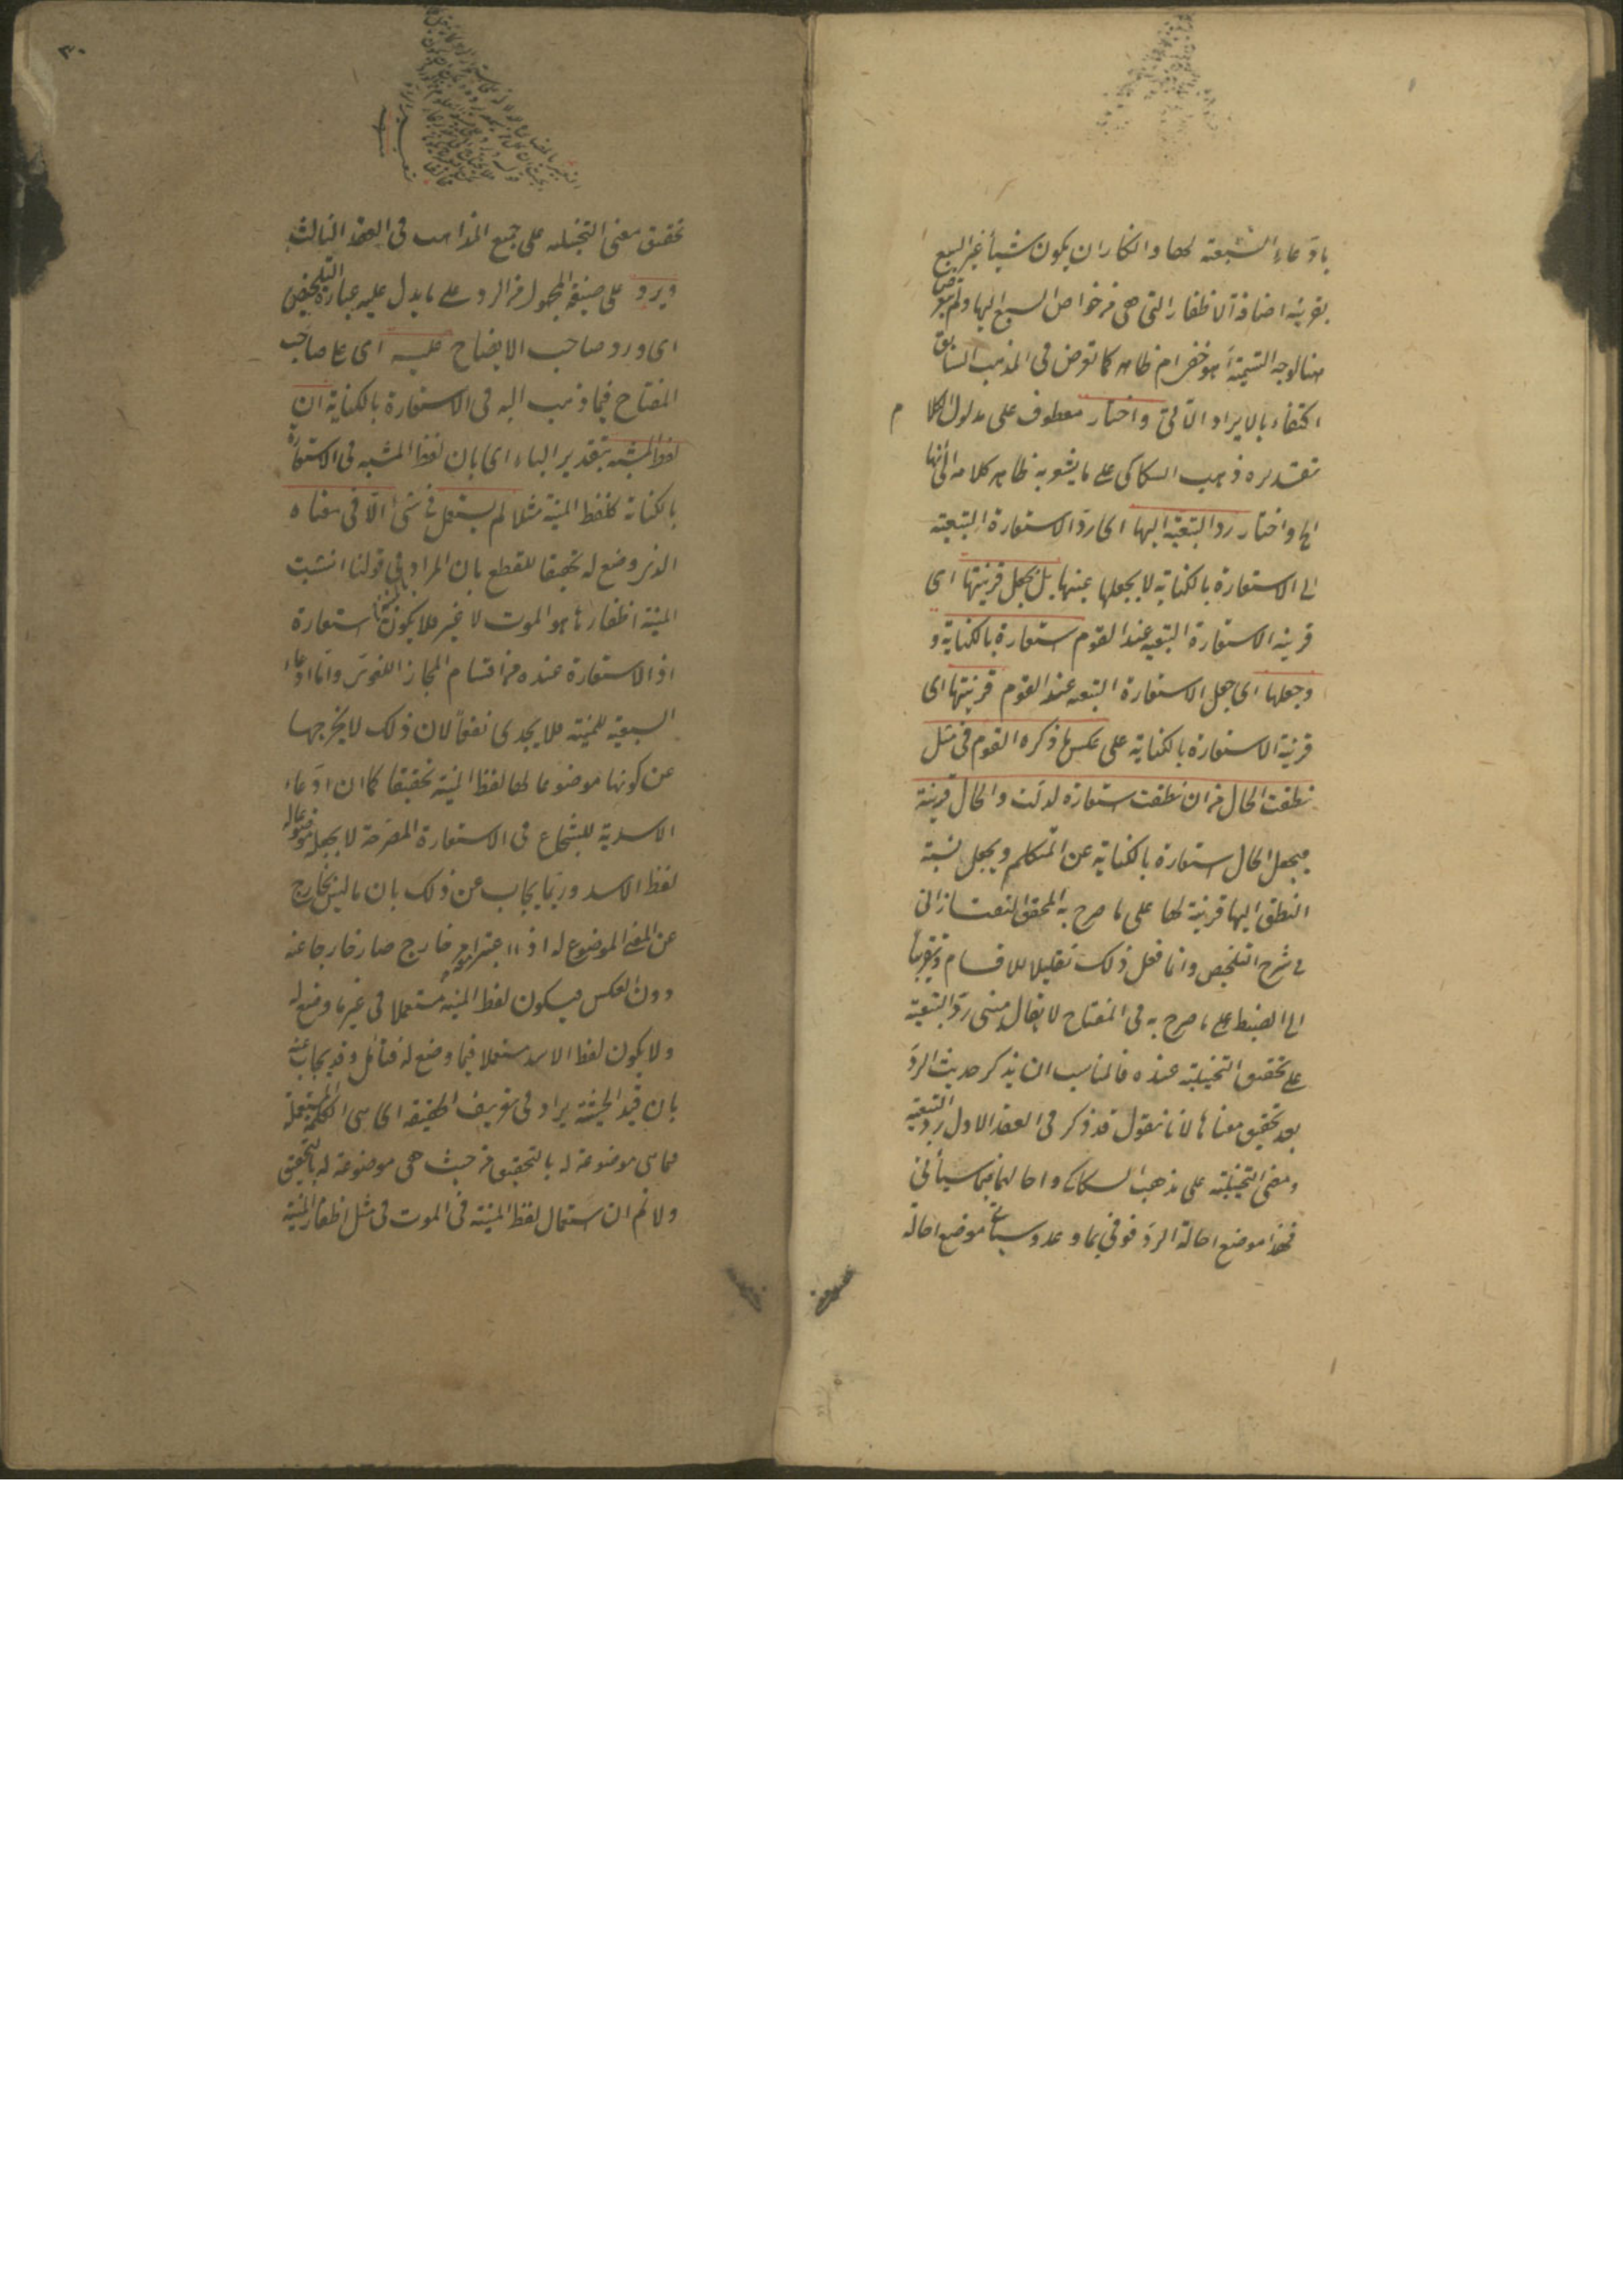 بادّعاء السبعية لها وانكار ان يكون شيأ غير السبع
بقرينة اضافة الاظفار التى هى من خواص السبع اليها ولم يتعرض
هنا لوجه التسمية أهو خفى ام ظاهر كما تعرض فى المذهب السابق
اكتفاء بالايراد الآتى واختار معطوف على مدلول الكلام
تقديره ذهب السكاكى على ما يشعر به ظاهر كلامه الى أنها
الخ واختار ردّ التبعية اليها اى ردّ الاستعارة التبعية
الى الاستعارة بالكناية لا بجعلها عينها بل بجعل قرينتها اى
قرينة الاستعارة التبعية عند القوم استعارة بالكناية و
وجعلها اى جعل الاستعارة التبعية عند القوم قرينتها اى
قرينة الاستعارة بالكناية على عكس ما ذكره القوم فى مثل
نطقت الحال من ان نطقت استعارة لدلّت والحال قرينة
فيجعل الحال استعارة بالكناية عن المتكلم ويجعل نسبة
النطق اليها قرينة لها على ما صرح به المحقق التفتازانى
فى شرح التلخيص وانما فعل ذلك تقليلا للاقسام وتقريباً
الى الضبط على ما صرح به فى المفتاح لا يقال مبنى ردّ التبعية
على تحقيق التخييلية عنده فالمناسب ان يذكر حديث الردّ
بعد تحقيق معناها لانا نقول قد ذكر فى العقد الاول ردّ التبعية
ومعنى التخييلية على مذهب السكاكى واحالهما فيما سيأتى
فهذا موضع احالة الردّ فوفى بما وعد وسيأتى موضع احالة
٣٠
تحقيق معنى التخييلية على جميع المذاهب فى العقد الثالث
ويرد على صيغة المجهول من الرد على ما يدل عليه عبارة التلخيص
اى ورد صاحب الايضاح عليه اى على صاحب
المفتاح فيما ذهب اليه فى الاستعارة بالكناية ان
لفظ المشبه بتقدير الباء اى بان لفظ المشبه فى الاستعارة
بالكناية كلفظ المنية مثلا لم يستعمل فى شئ الّا فى معناه
الذى وضع له تحقيقا للقطع بان المراد بالمنية فى قولنا انشبت
المنية اظفارها هو الموت لا غير فلا يكون استعارة
اذ الاستعارة عنده من اقسام المجاز اللغوى وامّا ادعاء
السبعية للمنية فلا يجدى نفعاً لان ذلك لا يخرجها
عن كونها موضوعا لها لفظ المنية تحقيقا كما ان ادّعاء
الاسدية للشجاع فى الاستعارة المصرحة لا يجعله موضوعا له
لفظ الاسد وربّما يجاب عن ذلك بان ما ليس بخارج
عن المعنى الموضوع له اذا اعتبر امر خارج صار خارجا عنه
دون العكس فيكون لفظ المنية مستعملا فى غير ما وضع له
ولا يكون لفظ الاسد مستعملا فيما وضع له فتأمل وقد يجاب عنه
بان قيد الحيثية يراد فى تعريف الحقيقة اى هى الكلمة المستعملة
فيما هى موضوعة له بالتحقيق من حيث هى موضوعة له بالتحقيق
ولا نم ان استعمال لفظ المنية فى الموت فى مثل اظفار المنية